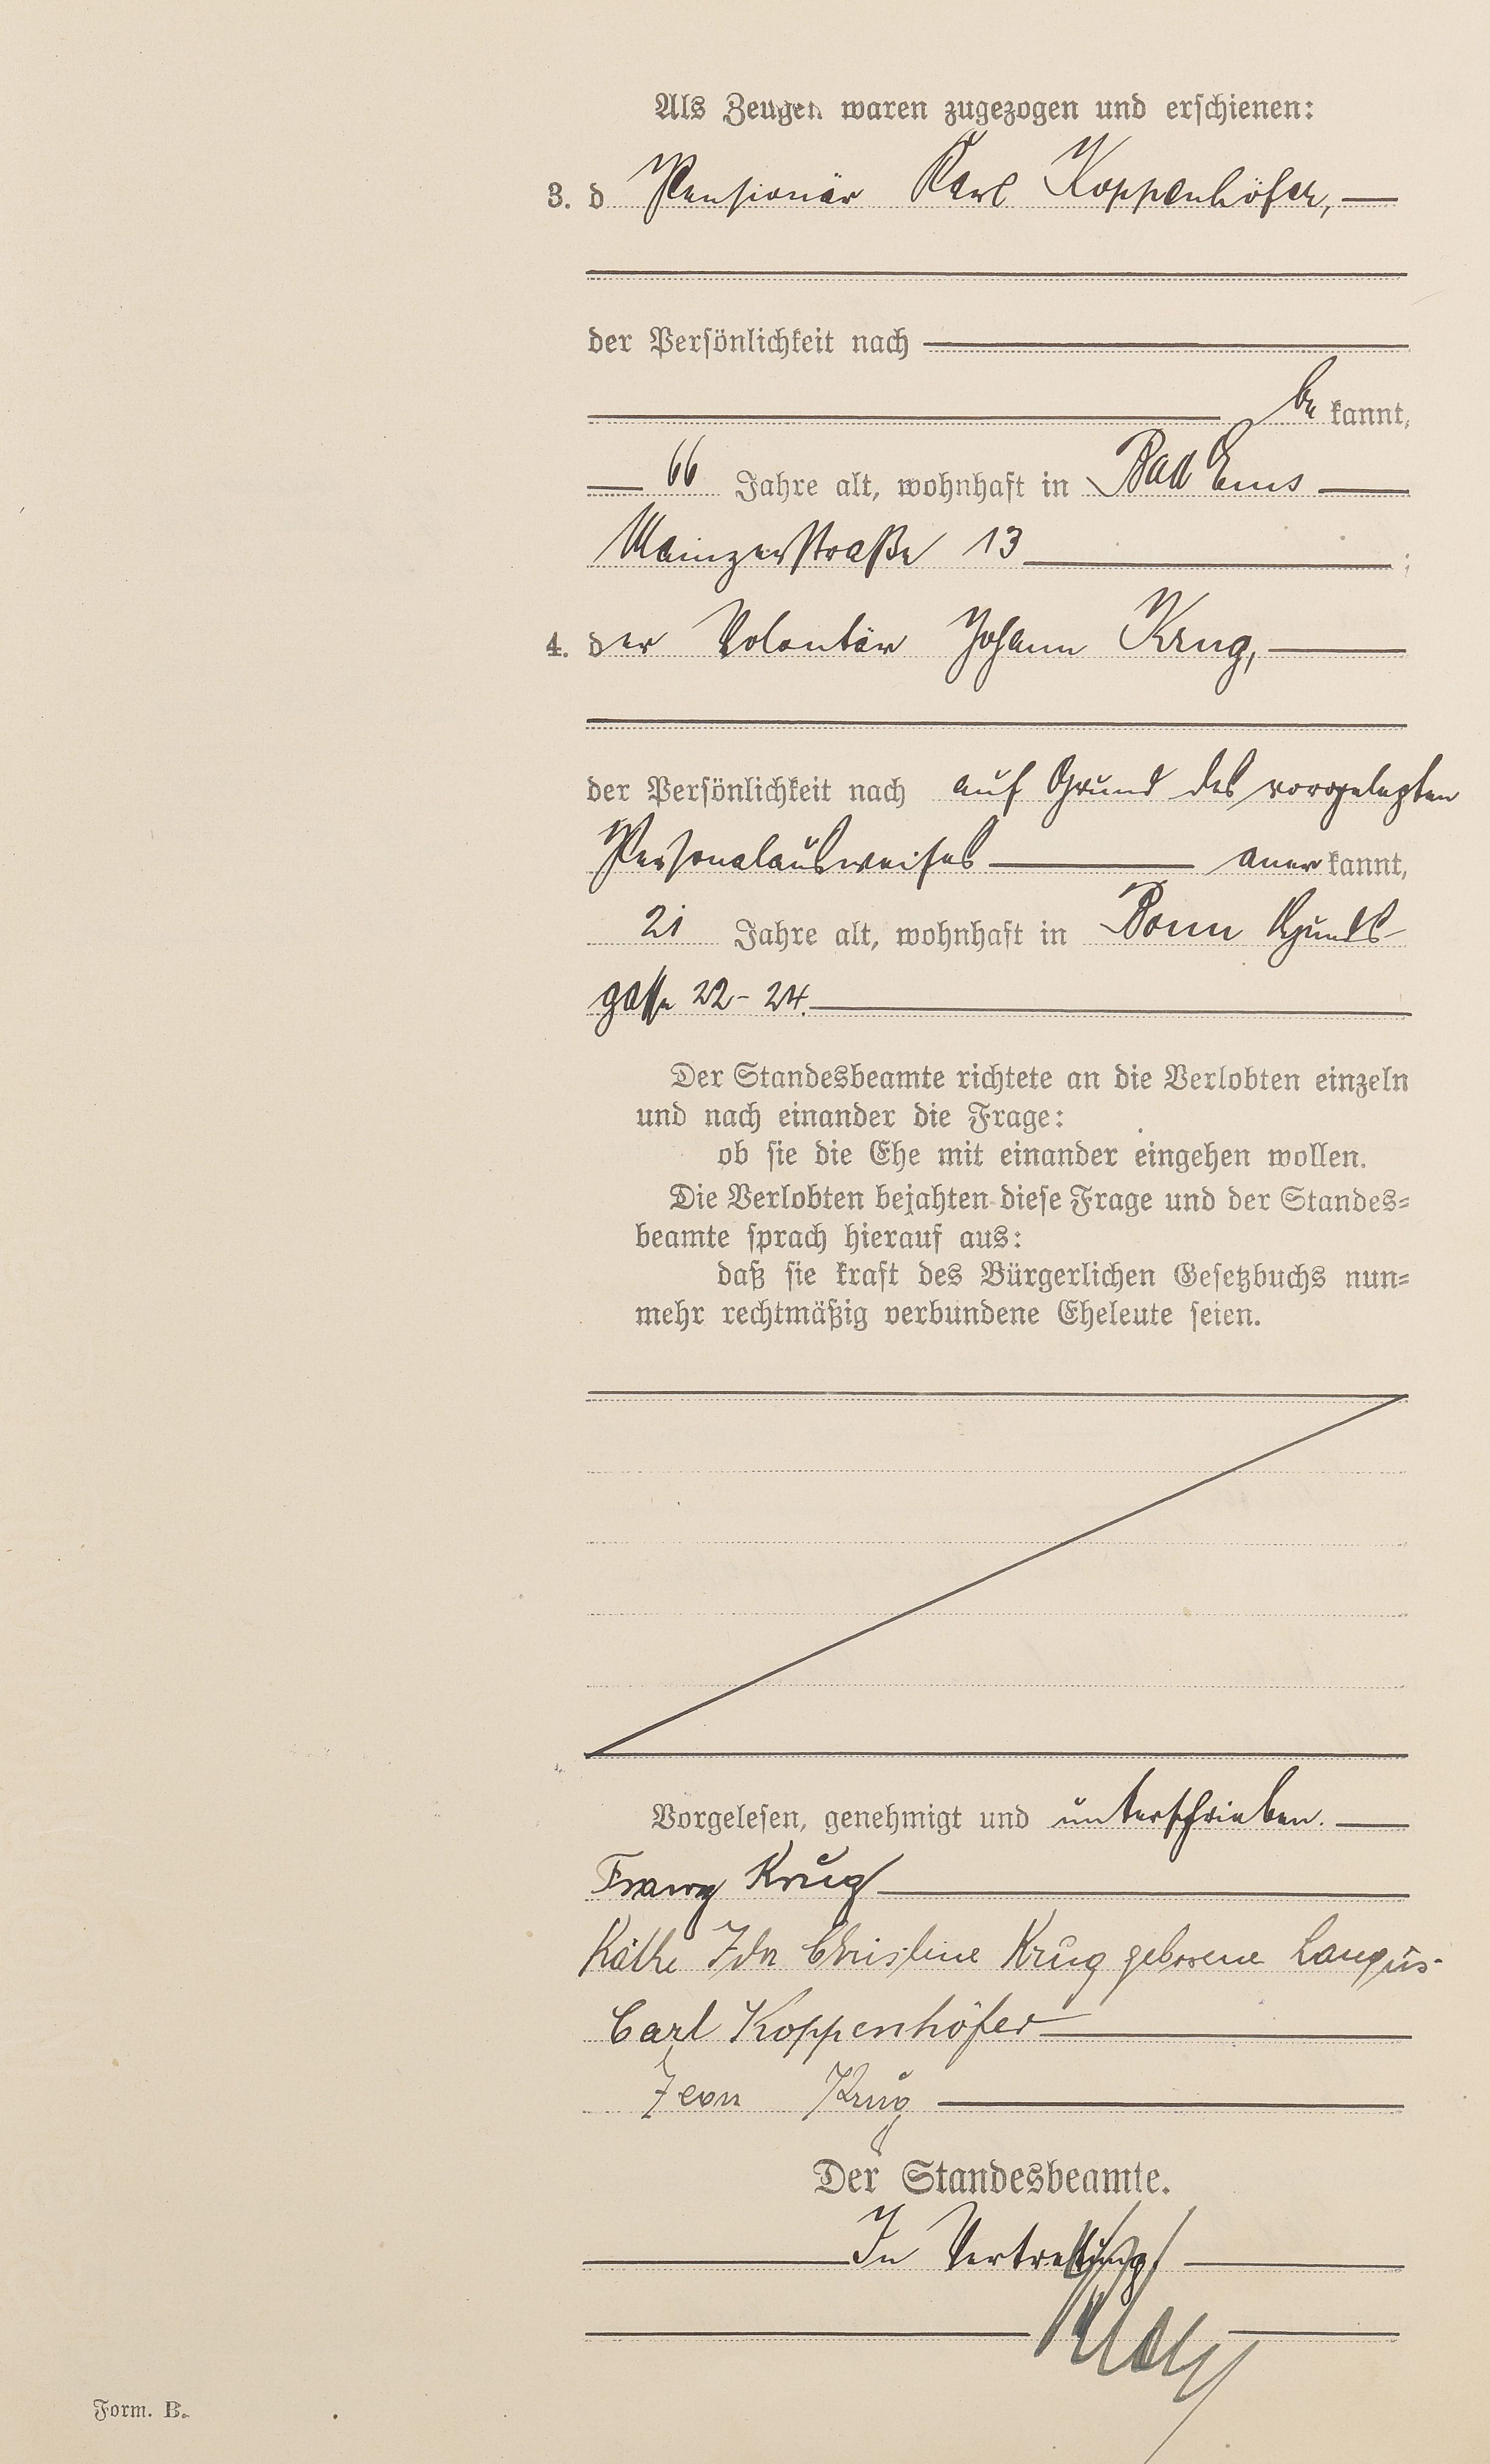 Als Zeugen waren zugezogen und erschienen:
3. d Pensionär Karl Koppenhöfer,
der Persönlichkeit nach
be kannt,
66 Jahre alt, wohnhaft in Bad Ems
Mainzerstraße 13 ;
4. der Volontär Johann Krug,
der Persönlichkeit nach auf Grund des vorgelegten
Personalausweises anerkannt,
21 Jahre alt, wohnhaft in Bonn
gasse 22-24.
Der Standesbeamte richtete an die Verlobten einzeln
und nach einander die Frage:
ob sie die Ehe mit einander eingehen wollen.
Die Verlobten bejahten diese Frage und der Standes=
beamte sprach hierauf aus:
daß sie kraft des Bürgerlichen Gesetzbuchs nun=
mehr rechtmäßig verbundene Eheleute seien.
Vorgelesen, genehmigt und unterschrieben.
Franz Krug
Käthe Ida Christine Krug geborene
Carl Koppenhöfer
Jean Krug
Der Standesbeamte.
In Vertretung
Form. B.